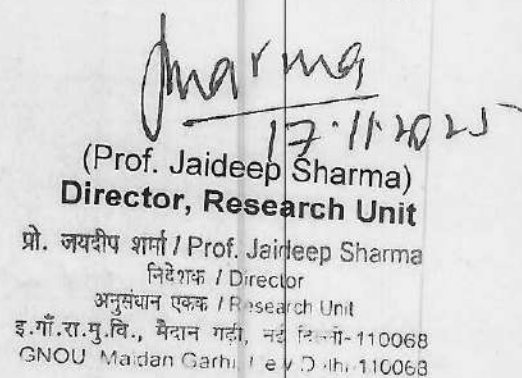 Sharma
17.11.2025
(Prof. Jaideep Sharma)
Director, Research Unit
प्रो. जयदीप शर्मा / Prof. Jaideep Sharma
निदेशक / Director
अनुसंधान एकक / Research Unit
इ.गाँ.रा.मु.वि., मैदान गढ़ी, नई दिल्ली-110068
GNOU Maidan Garhi, New Delhi-110068